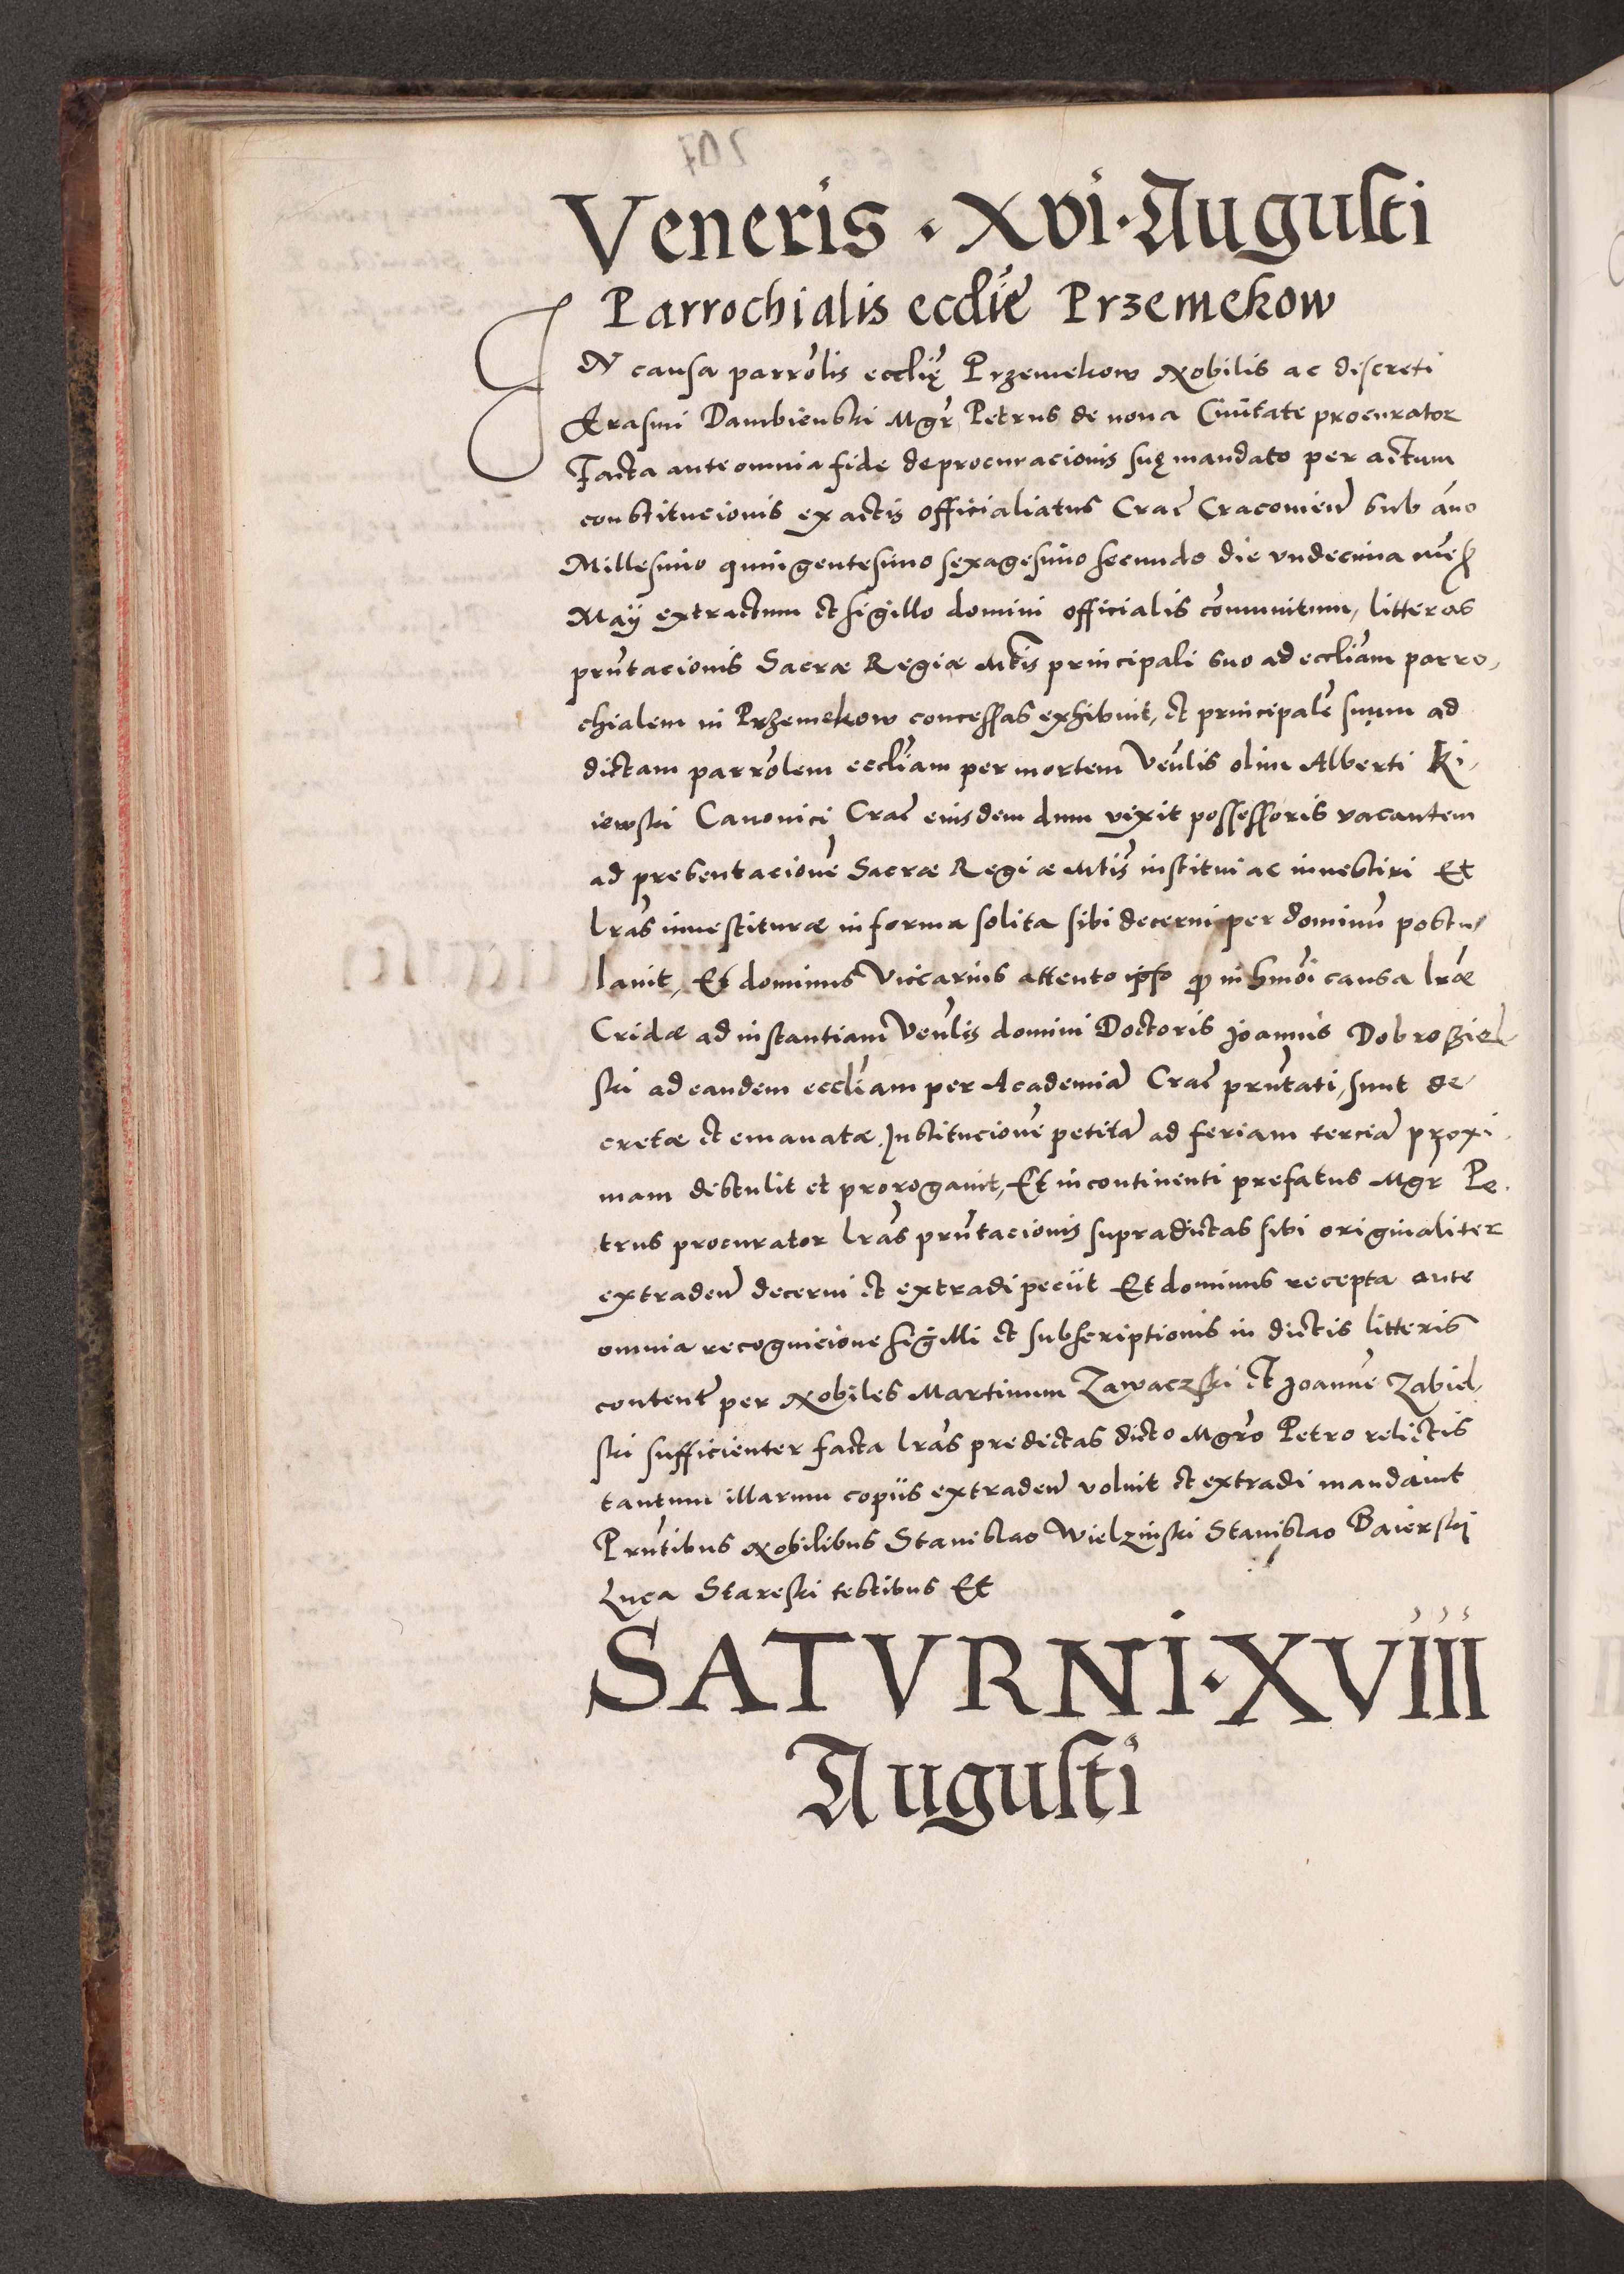 Veneris · xvi · Augusti
Parrochialis ecclie Przemekow
IN causa parrolis ecclię Przemekow Nobilis ac discreti
Erasmi Dambienski Mgr Petrus de nova Civitate procurator
Facta ante omnia fide de procuracionis suę mandato per actum
constitucionis ex actis officialiatus Crac Cracovien sub ano
Millesimo quingentesimo sexagesimo secundo die vndecima mens
Maÿ extractum et sigillo domini officialis comunitum, litteras
prntacionis Sacræ Regiæ Mtis principali suo ad eccliam parro,
chialem in Przemekow concessas exhibuit, et principale suum ad
dictam parrolem eccliam per mortem Venlis olim Alberti Ki,
iewski Canonici Crac eiusdem dum vixit possessoris vacantem
ad presentacione Sacræ Regiæ Mtis institui ac investiri Et
lras investituræ in forma solita sibi decerni per dominu postu,
lavit, Et dominus Viccarius attento ipso quod in hmoi causa lræ
Cridæ ad instantiam Venlis domini Doctoris Joannis Dobrosziel,
ski ad eandem eccliam per Academia Crac prntati, sunt de,
cretæ et emanatæ. Institucione petita ad feriam tercia proxi,
mam distulit et prorogavit, Et incontinenti prefatus Mgr Pe,
trus procurator lras prntacionis supradictas sibi originaliter
extraden decerni et extradi peciit Et dominus recepta ante
omnia recognicione sigilli et subscriptionis in dictis litteris
content per Nobiles Martinum Zawaczski et Joanne Zabiel,
ski sufficienter facta lras predictas dicto Mgro Petro relictis
tantum illarum copiis extraden voluit et extradi mandavit
Prntibus Nobilibus Stanislao Wielzinski Stanislao Baierski
Luca Stareski testibus Et
SATVRNI · XVIII
Augusti